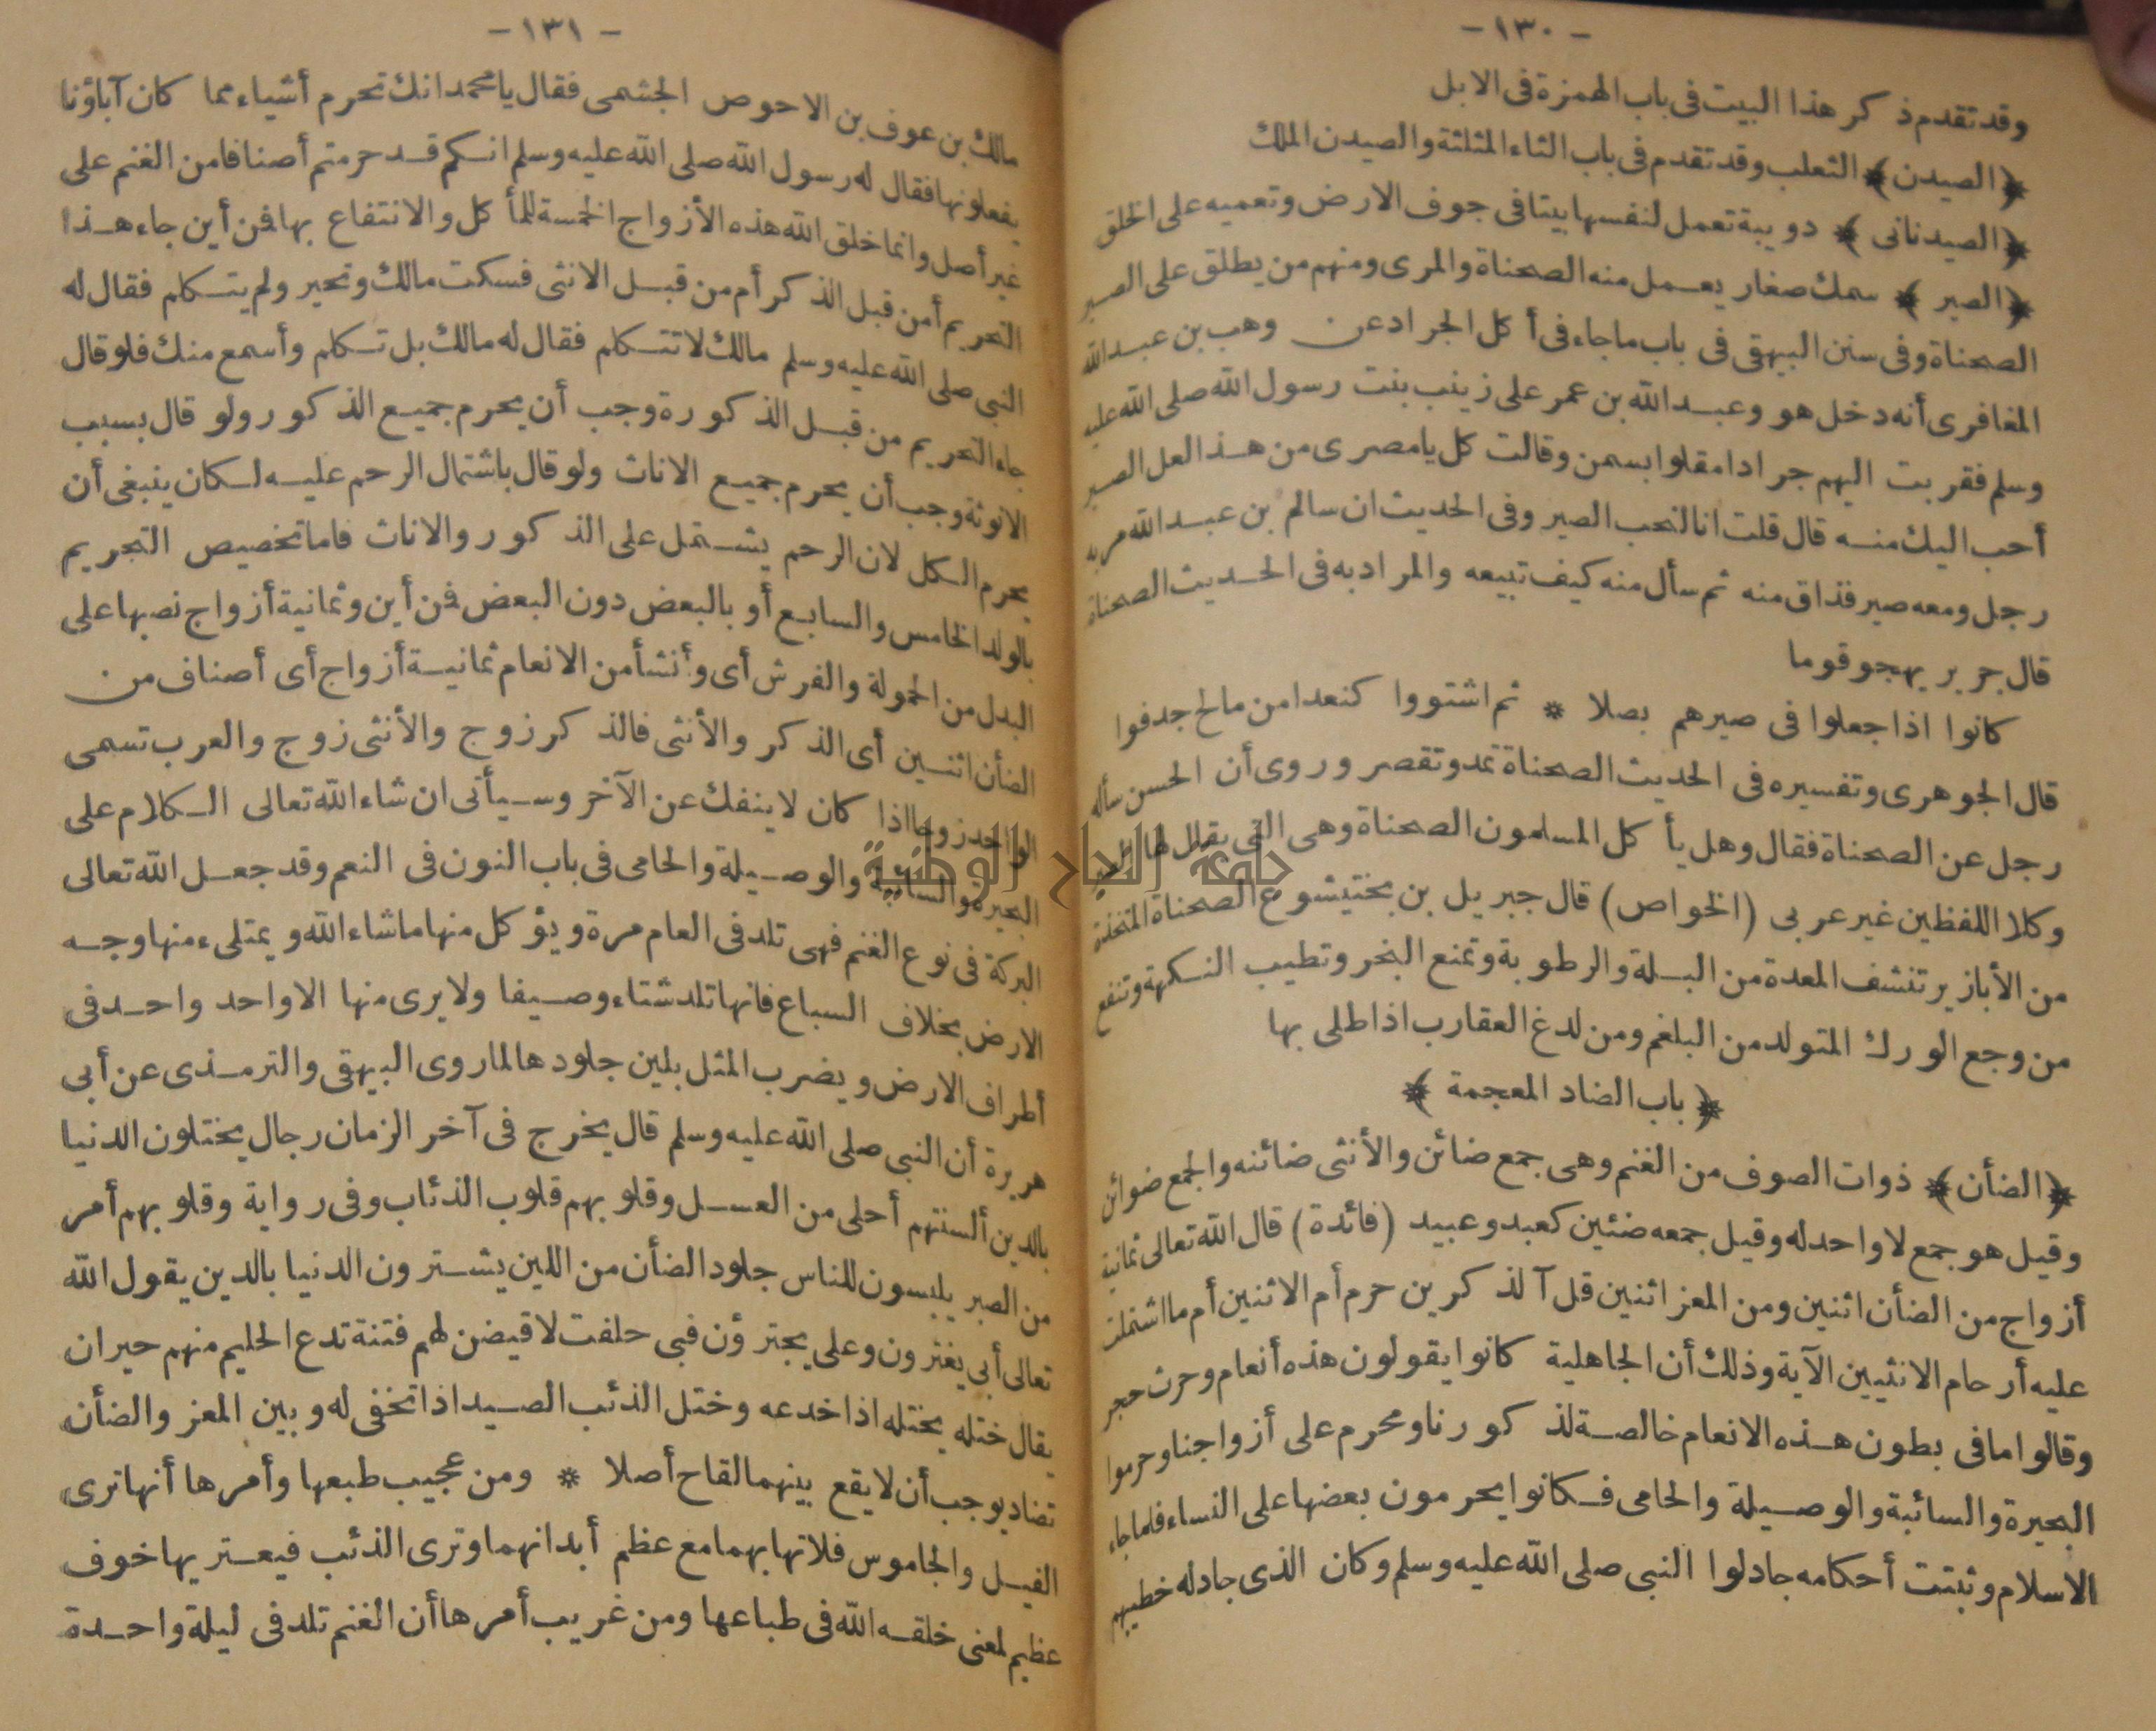 - ١٣٠ -
وقد تقدم ذكر هذا البيت فى باب الهمزة فى الابل
﴿الصيدن﴾ الثعلب وقد تقدم فى باب الثاء المثلثة والصيدن الملك
﴿الصيدنانى﴾ دويبة تعمل لنفسها بيتا فى جوف الارض وتعميه على الخلق
﴿الصير﴾ سمك صغار يعمل منه الصحناة والمرى ومنهم من يطلق على الصير
الصحناة وفى سنن البيهقى فى باب ما جاء فى أكل الجراد عن وهب بن عبد الله
المغافرى أنه دخل هو وعبد الله بن عمر على زينب بنت رسول الله صلى الله عليه
وسلم فقربت اليهم جرادا مقلوا بسمن وقالت كل يا مصرى من هذا لعل الصير
أحب اليك منه قال قلت انا لنحب الصير وفى الحديث ان سالم بن عبد الله مر به
رجل ومعه صير فذاق منه ثم سأل منه كيف تبيعه والمراد به فى الحديث الصحناة
قال جرير يهجو قوما
كانوا اذا جعلوا فى صيرهم بصلا * ثم اشتووا كنعدا من مالح جدفوا
قال الجوهرى وتفسيره فى الحديث الصحناة تمد وتقصر وروى أن الحسن سأله
رجل عن الصحناة فقال وهل يأكل المسلمون الصحناة وهى التى يقال لها الصير
وكلا اللفظين غير عربى (الخواص) قال جبريل بن بختيشوع الصحناة المتخذة
من الأبازير تنشف المعدة من البلة والرطوبة وتمنع البخر وتطيب النكهة وتنفع
من وجع الورك المتولد من البلغم ومن لدغ العقارب اذا طلى بها
﴿باب الضاد المعجمة﴾
﴿الضأن﴾ ذوات الصوف من الغنم وهى جمع ضائن والأنثى ضائنه والجمع ضوائن
وقيل هو جمع لا واحد له وقيل جمعه ضئين كعبد وعبيد (فائدة) قال الله تعالى ثمانية
أزواج من الضأن اثنين ومن المعز اثنين قل آلذكرين حرم أم الاثنين أم ما اشتملت
عليه أرحام الانثيين الآية وذلك أن الجاهلية كانوا يقولون هذه أنعام وحرث حجر
وقالوا ما فى بطون هذه الانعام خالصة لذكورنا ومحرم على أزواجنا وحرموا
البحيرة والسائبة والوصيلة والحامى فكانوا يحرمون بعضها على النساء فلما جاء
الاسلام وثبتت أحكامه جادلوا النبى صلى الله عليه وسلم وكان الذى جادله خطيبهم
- ١٣١ -
مالك بن عوف بن الاحوص الجشمى فقال يا محمد انك تحرم أشياء مما كان آباؤنا
يفعلونها فقال له رسول الله صلى الله عليه وسلم انكم قد حرمتم أصنافا من الغنم على
غير أصل وانما خلق الله هذه الأزواج الخمسة للمأكل والانتفاع بها فمن أين جاء هذا
التحريم أمن قبل الذكر أم من قبل الانثى فسكت مالك وتحير ولم يتكلم فقال له
النبى صلى الله عليه وسلم مالك لا تتكلم فقال له مالك بل تكلم وأسمع منك فلو قال
جاء التحريم من قبل الذكورة وجب أن يحرم جميع الذكور ولو قال بسبب
الانوثة وجب أن يحرم جميع الاناث ولو قال باشتمال الرحم عليه لكان ينبغى أن
يحرم الكل لان الرحم يشتمل على الذكور والاناث فاما تخصيص التحريم
بالولد الخامس والسابع أو بالبعض دون البعض فمن أين وثمانية أزواج نصبها على
البدل من الحمولة والفرش أى وأنشأ من الانعام ثمانية أزواج أى أصناف من
الضأن اثنين أى الذكر والأنثى فالذكر زوج والأنثى زوج والعرب تسمى
الواحد زوجا اذا كان لا ينفك عن الآخر وسيأتى ان شاء الله تعالى الكلام على
البحيرة والسائبة والوصيلة والحامى فى باب النون فى النعم وقد جعل الله تعالى
البركة فى نوع الغنم فهى تلد فى العام مرة ويؤكل منها ما شاء الله ويمتلىء منها وجه
الارض بخلاف السباع فانها تلد شتاء وصيفا ولا يرى منها الا واحد واحد فى
أطراف الارض ويضرب المثل بلين جلودها لما روى البيهقى والترمذى عن أبى
هريرة أن النبى صلى الله عليه وسلم قال يخرج فى آخر الزمان رجال يختلون الدنيا
بالدين ألسنتهم أحلى من العسل وقلوبهم قلوب الذئاب وفى رواية وقلوبهم أمر
من الصبر يلبسون للناس جلود الضأن من اللين يشترون الدنيا بالدين يقول الله
تعالى أبى يغترون وعلى يجترؤن فبى حلفت لاقيضن لهم فتنة تدع الحليم منهم حيران
يقال ختله يختله اذا خدعه وختل الذئب الصيد اذا تخفى له وبين المعز والضأن
تضاد يوجب أن لا يقع بينهما لقاح أصلا * ومن عجيب طبعها وأمرها أنها ترى
الفيل والجاموس فلا تهابهما مع عظم أبدانهما وترى الذئب فيعتريها خوف
عظيم لمعنى خلقه الله فى طباعها ومن غريب أمرها أن الغنم تلد فى ليلة واحدة
جامعة النجاح الوطنية